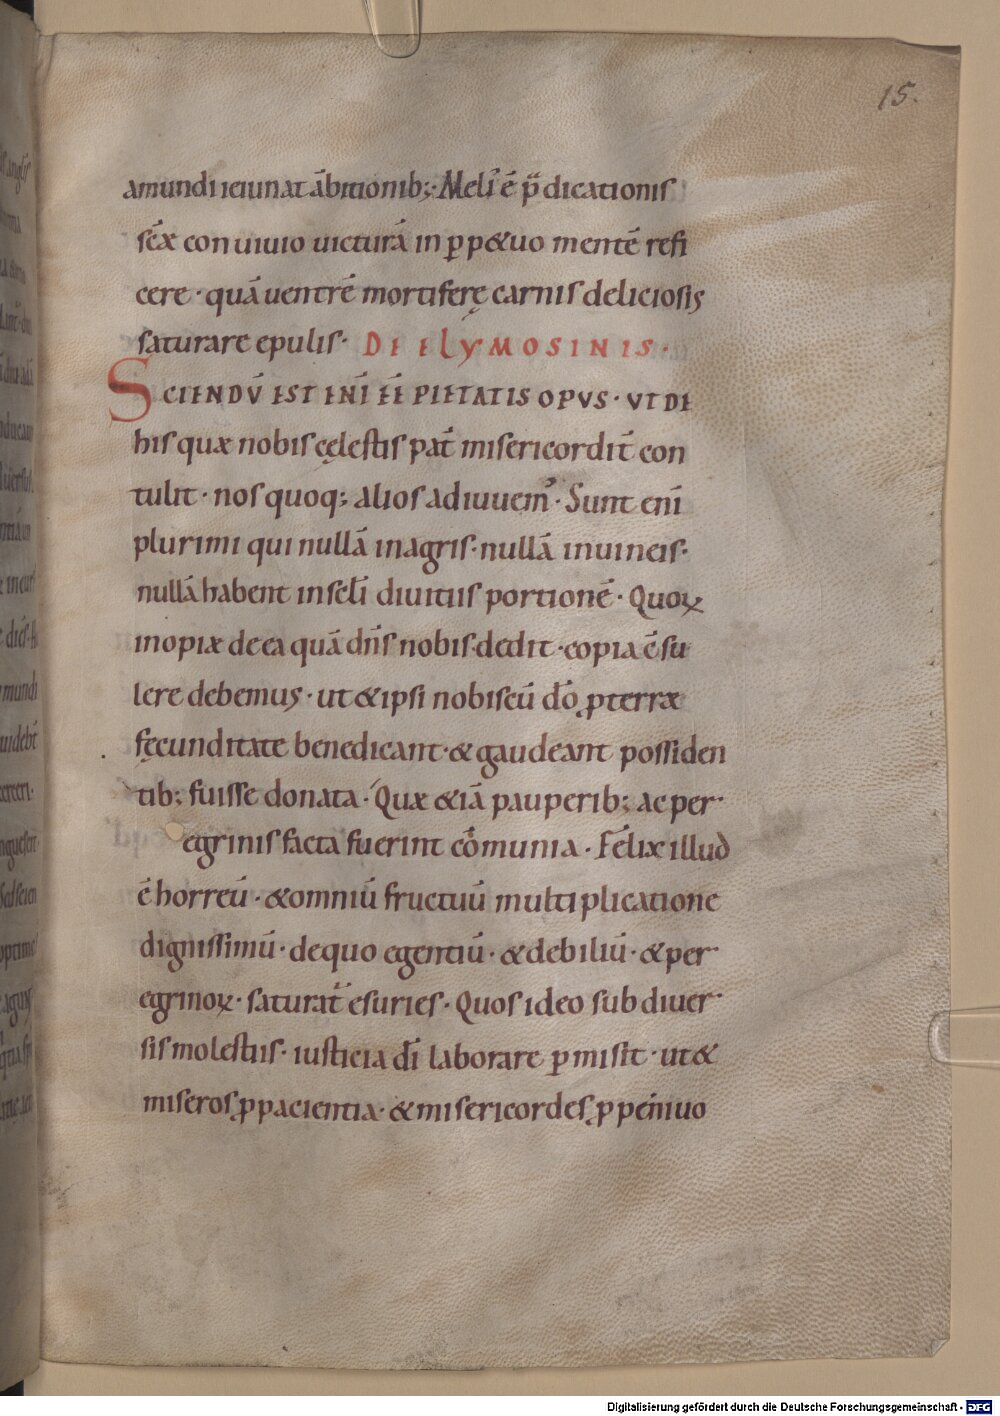 15.
amundi ieiunat ābitionib; · Meli᷒ ē p̄dicationis
sēx conuiuio uicturā in ꝑp&uo mentē refi
cere · quā uentrē mortiferę carnis deliciosis
saturare epulis · DE ELYMOSINIS ·
SCIENDŪ EST ENĪ EĒ PIETATIS OPVS · VT DE
his quæ nobis cęlestis pat̄ misericordit̄ con
tulit · nos quoq; alios adiuuem᷒ · Sunt enī
plurimi qui nullā in agris · nullā in uineis ·
nullā habent in sclī diuitiis portionē · Quoꝝ
inopiæ de ea quā dn̄s nobis dedit · copia ē su
lere debemus · ut & ipsi nobiscū dō ꝓ terræ
fęcunditate benedicant · & gaudeant possiden
tib; fuisse donata · Quæ &iā pauperib; ac per
egrinis facta fuerint cōmunia · Felix illud
ē horreū · & omniū fructuū multiplicatione
dignissimū · de quo egentiū · & debiliū · & per
egrinoꝝ · saturat᷒ esuries · Quos ideo sub diuer
sis molestiis · iusticia dī laborare ꝑmisit · ut &
miseros ꝓ pacientia · & misericordes ꝓ peniuo
Digitalisierung gefördert durch die Deutsche Forschungsgemeinschaft - DFG